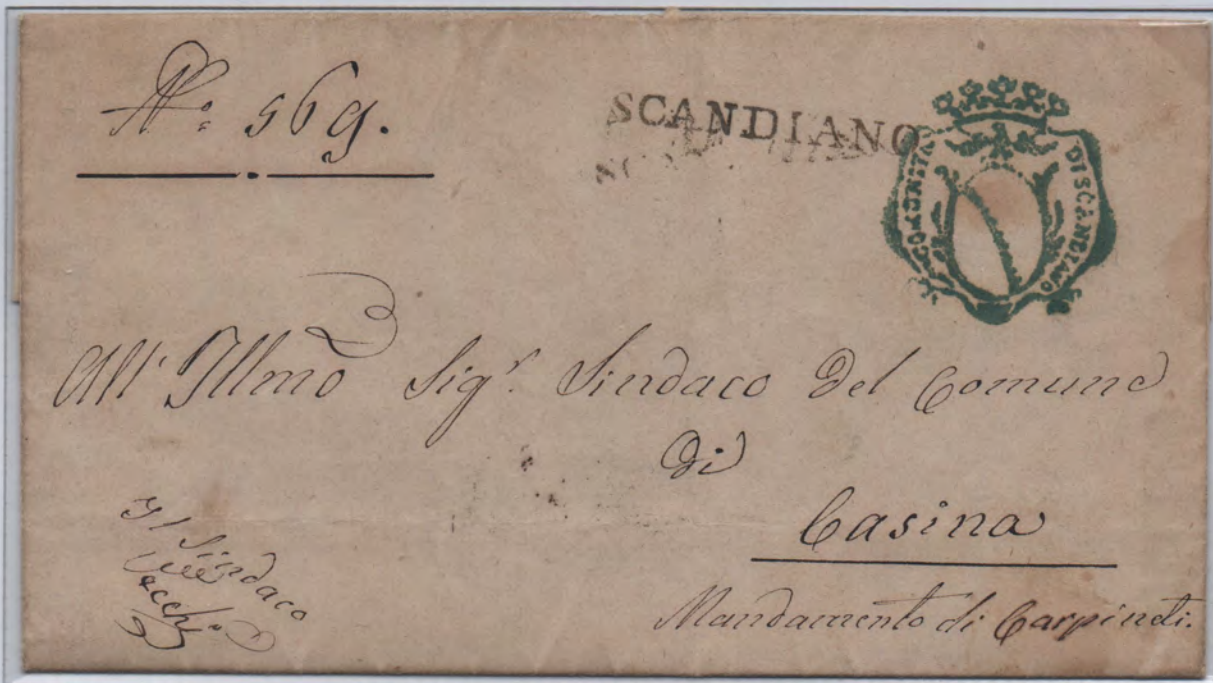 N.º 569.
SCANDIANO
COMUNITA DI SCANDIANO
All' Illmo Sig.r Sindaco Del Comune
Di
Casina
Mandamento di Carpineti.
Il Sindaco